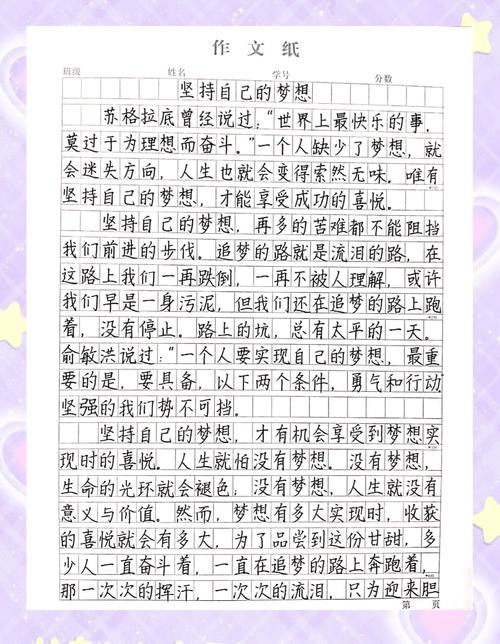 作文纸
班级 姓名 学号 分数
坚持自己的梦想
苏格拉底曾经说过：“世界上最快乐的事，
莫过于为理想而奋斗。”一个人缺少了梦想，就
会迷失方向，人生也就会变得索然无味。唯有
坚持自己的梦想，才能享受成功的喜悦。
坚持自己的梦想，再多的苦难都不能阻挡
我们前进的步伐。追梦的路就是流泪的路，在
这路上我们一再跌倒，一再不被人理解，或许
我们早是一身污泥，但我们还在追梦的路上跑
着，没有停止。路上的坑，总有太平的一天。
俞敏洪说过：“一个人要实现自己的梦想，最重
要的是，要具备，以下两个条件，勇气和行动
坚强的我们势不可挡。
坚持自己的梦想，才有机会享受到梦想实
现时的喜悦。人生就怕没有梦想。没有梦想，
生命的光环就会褪色；没有梦想，人生就没有
意义与价值。然而，梦想有多大实现时，收获
的喜悦就会有多大，为了品尝到这份甘甜，多
少人一直奋斗着，一直在追梦的路上奔跑着，
那一次次的挥汗，一次次的流泪，只为迎来胆
第 页